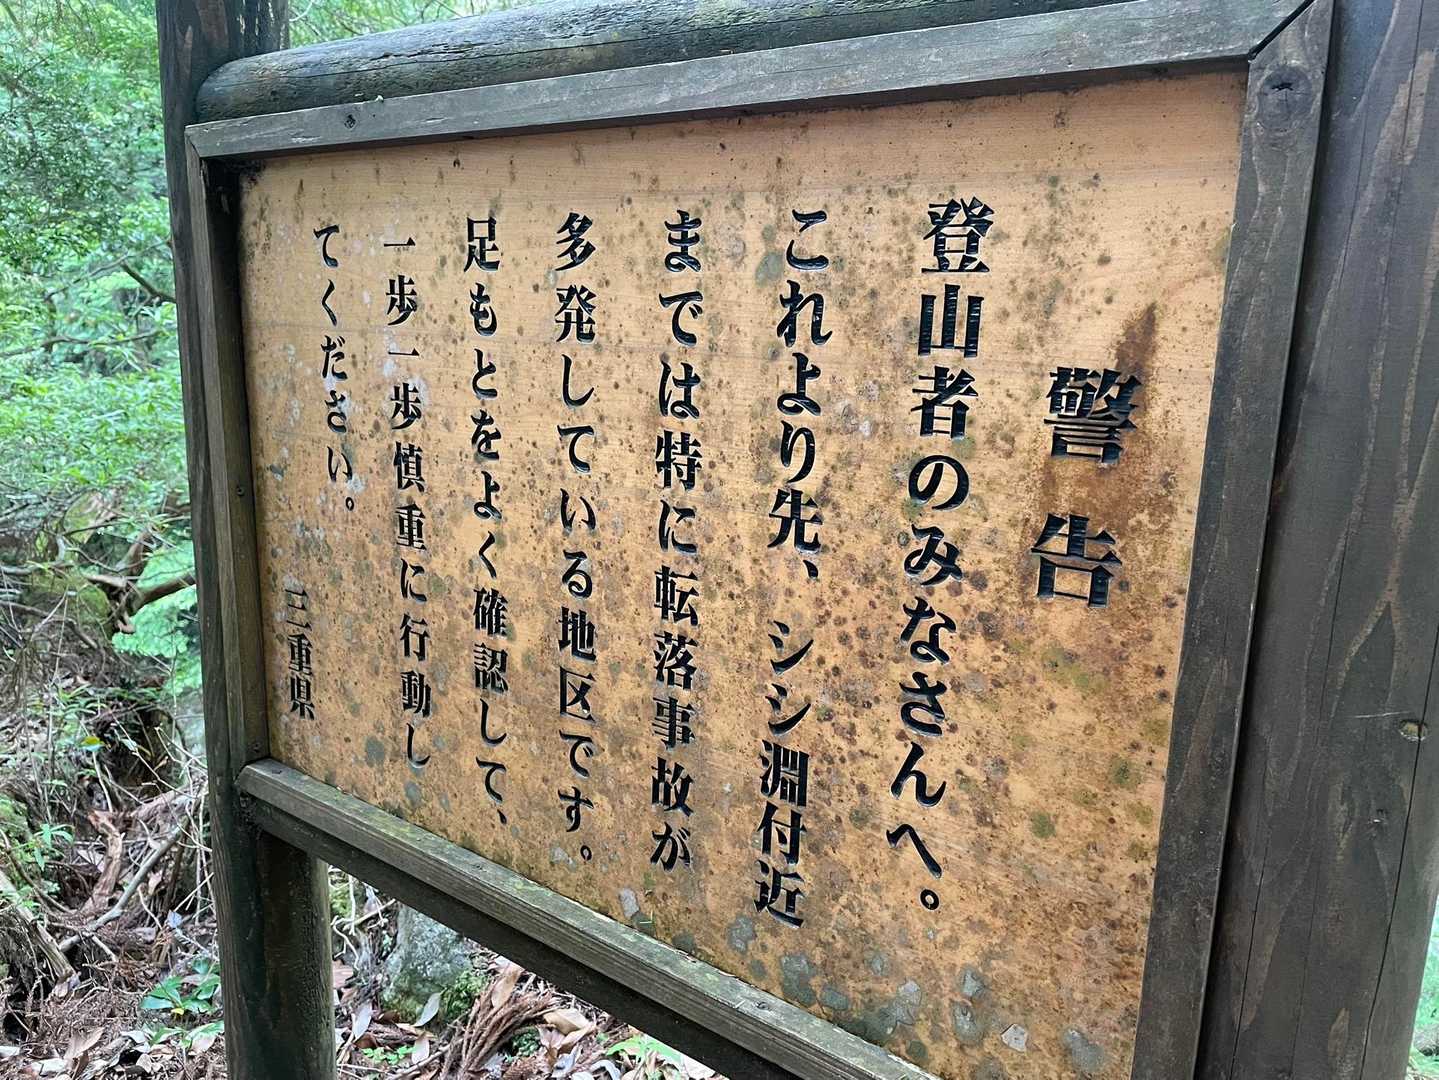 警告
登山者のみなさんへ。
これより先、シシ淵付近
までは特に転落事故が
多発している地区です。
足もとをよく確認して、
一歩一歩慎重に行動し
てください。
三重県